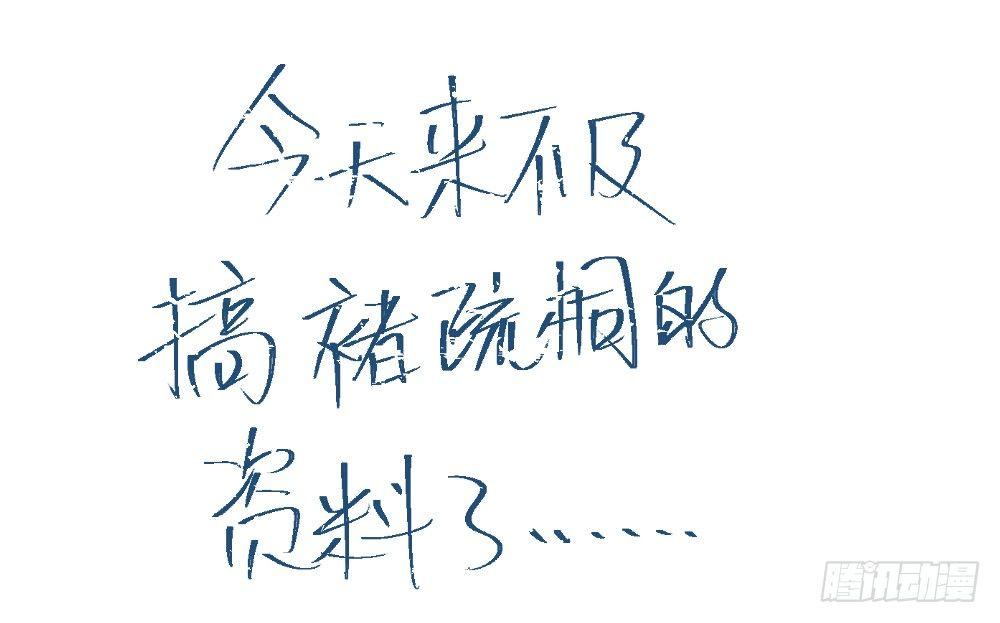 今天来不及
搞褚疏桐的
资料了……
腾讯动漫